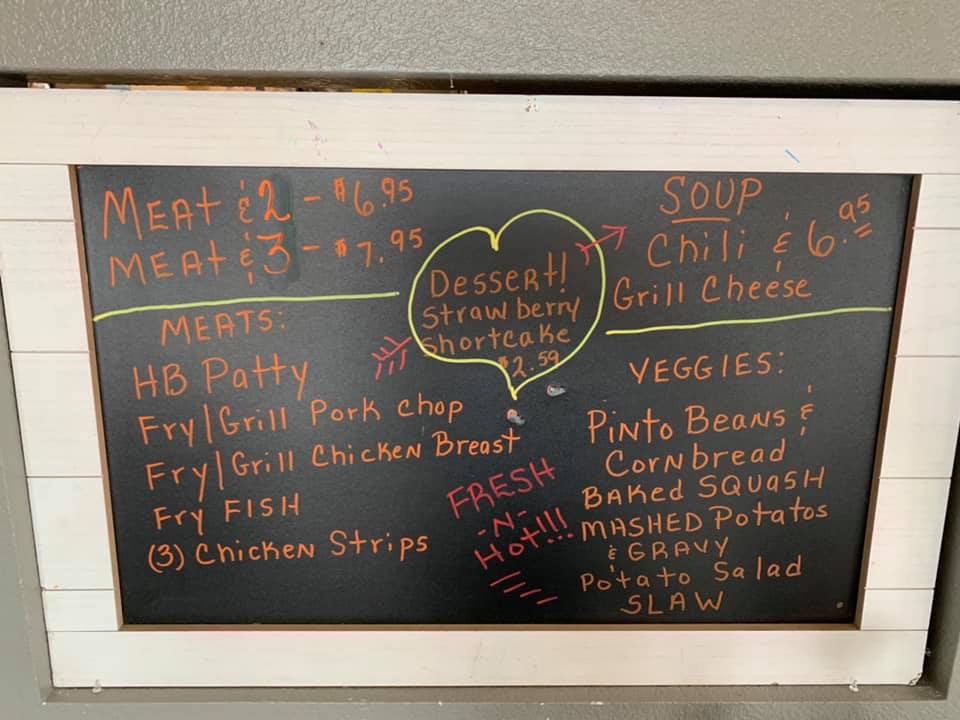 MEAT & 2 - $6.95
MEAT & 3 - $7.95
MEATS:
HB Patty
Fry/Grill Pork Chop
Fry/Grill Chicken Breast
Fry FISH
(3) Chicken Strips
Dessert!
Strawberry
Shortcake
$2.59
FRESH
-N-
Hot!!!
SOUP
Chili & 6.95
Grill Cheese
VEGGIES:
Pinto Beans &
Cornbread
Baked SQUASH
MASHED Potatos
& GRAVY
Potato Salad
SLAW